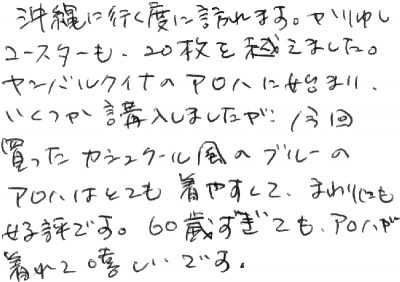 沖縄に行く度に訪れます。かりゆし
コースターも、20枚を越えました。
ヤンバルクイナのアロハに始まり、
いくつか購入しましたが、今回
買ったカシュクール風のブルーの
アロハはとても着やすくて、まわりにも
好評です。60歳すぎても、アロハが
着れて嬉しいです。